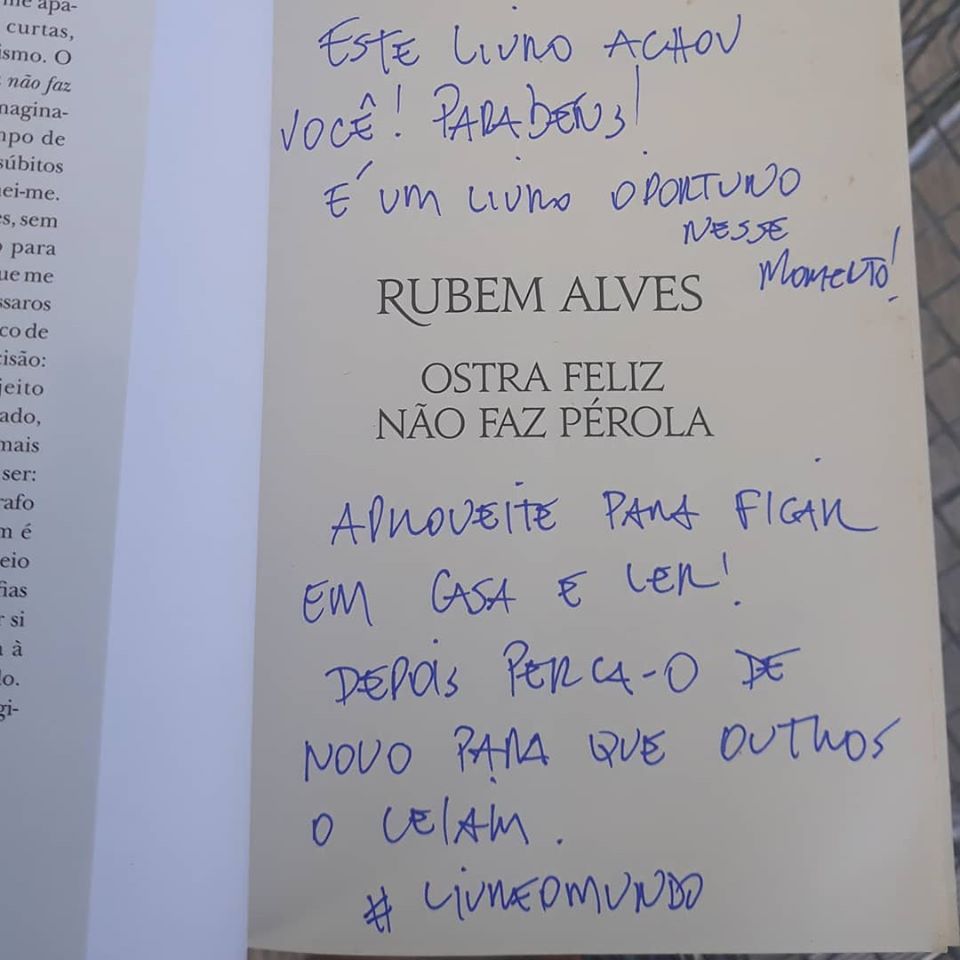 me apa-
curtas,
ismo. O
não faz
magina-
mpo de
súbitos
uei-me.
es, sem
o para
que me
ssaros
co de
cisão:
jeito
ado,
mais
ser:
rafo
m é
eio
fias
r si
a à
lo.
gi-
ESTE LIVRO ACHOU
VOCÊ! PARABÉNS!
É UM LIVRO OPORTUNO
NESSE
MOMENTO!
RUBEM ALVES
OSTRA FELIZ
NÃO FAZ PÉROLA
APROVEITE PARA FICAR
EM CASA E LER!
DEPOIS PERCA-O DE
NOVO PARA QUE OUTROS
O LEIAM.
# LIVREOMUNDO